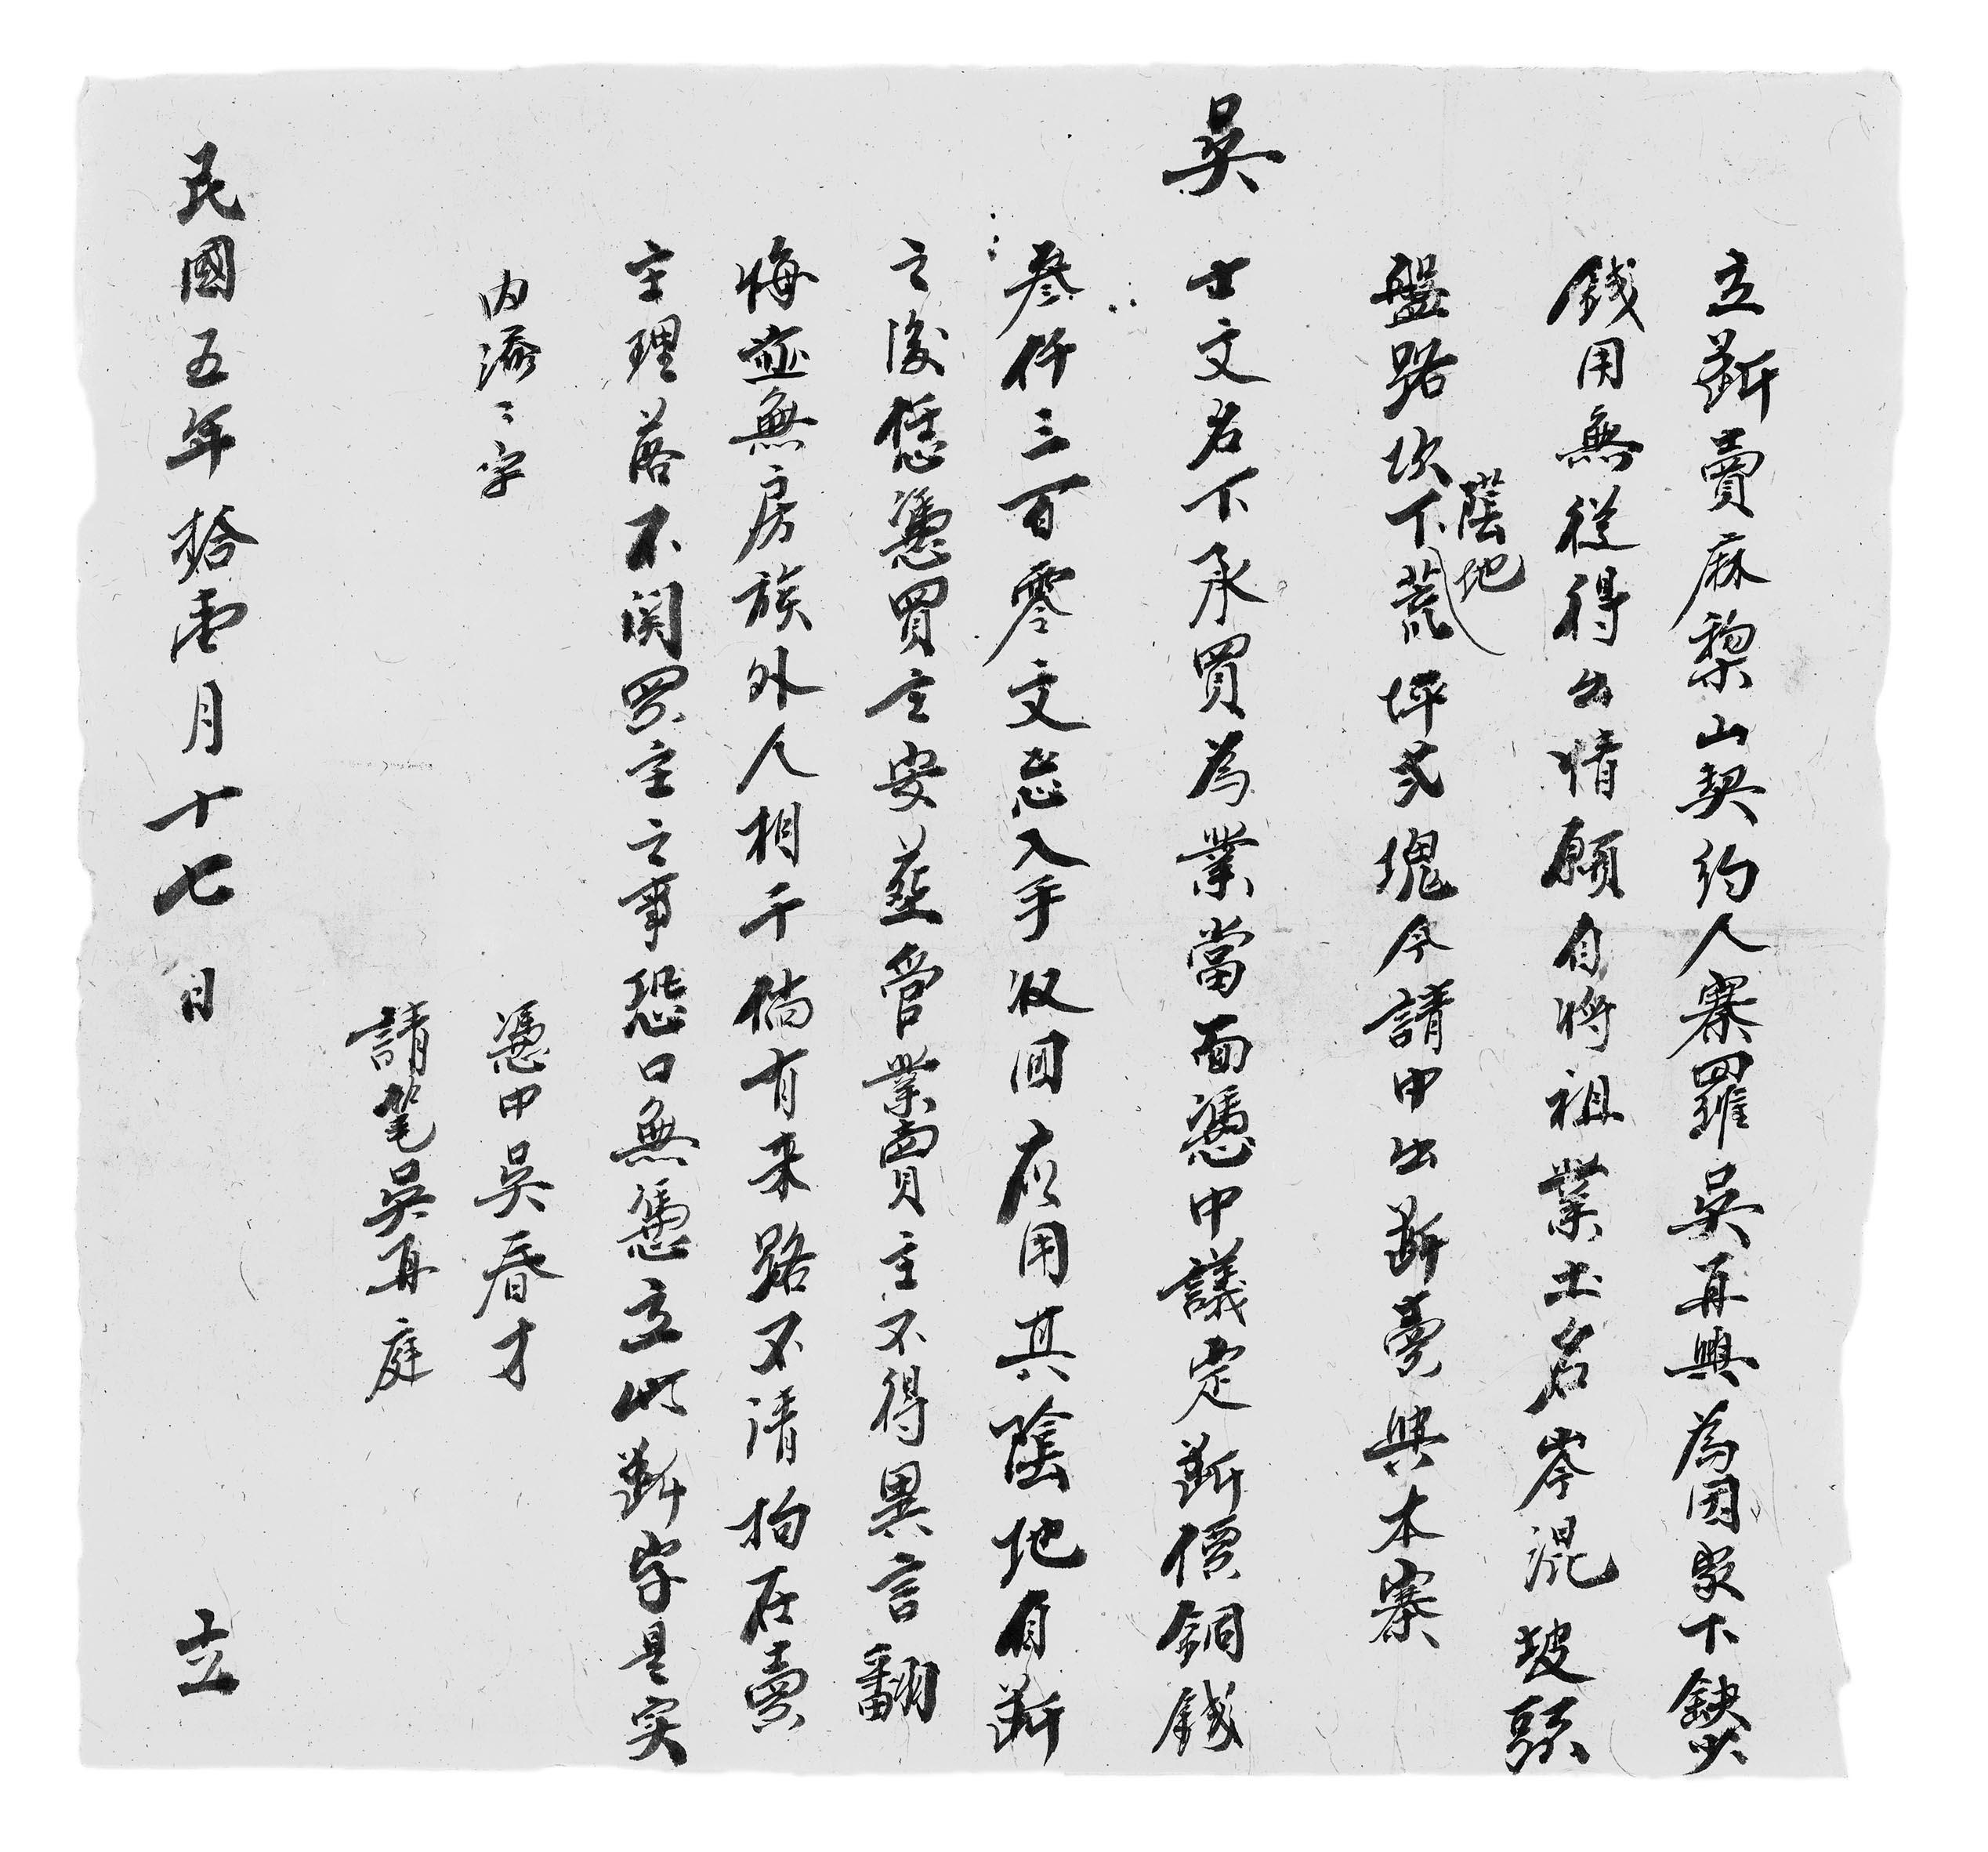 立斷賣麻棃山契約人寨羅吳再興為因家下缺少
錢用無從得出情願自將祖業土名岑混坡頭
盤路坎下荒坪弍塊今請中出斷賣與本寨
蔭地
吳
士文名下承買為業當面憑中議定斷價銅錢
叁仟三百零文忎入手收回應用其蔭地自斷
之後恁憑買主安葬管業賣主不得異言翻
悔並無房族外人相干倘有来路不清拘在賣
主理落不関買主之事恐口無憑立此斷字是实
內添二字
憑中吳春才
請筆吳再庭
民國五年拾壹月十七日 立